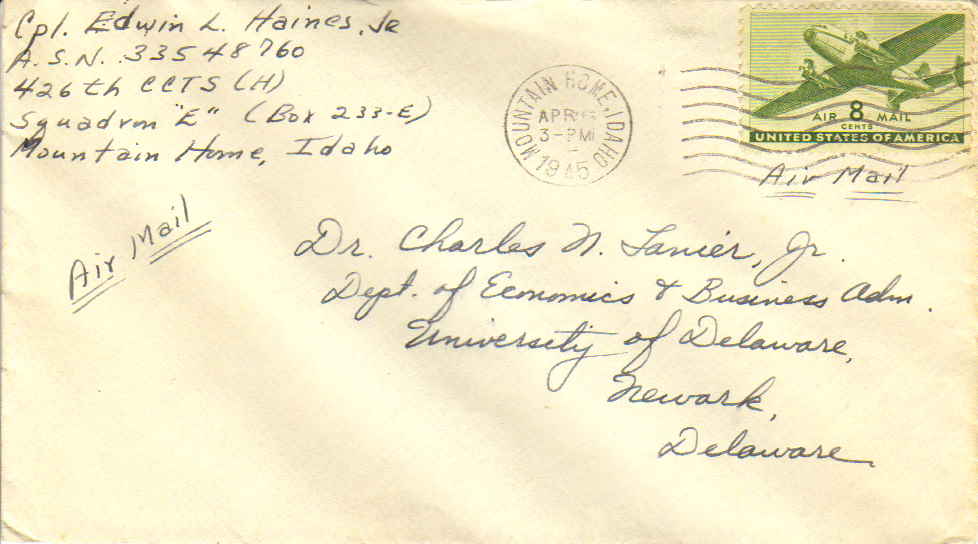 Cpl. Edwin L. Haines, Jr
A.S.N. 33548760
426th CCTS (H)
Squadron "E" (Box 233-E)
Mountain Home, Idaho
MOUNTAIN HOME, IDAHO
APR
3-PM
1945
AIR 8 MAIL
CENTS
UNITED STATES OF AMERICA
Air Mail
Air Mail
Dr. Charles N. Lanier, Jr.
Dept. of Economics & Business Adm.
University of Delaware,
Newark,
Delaware